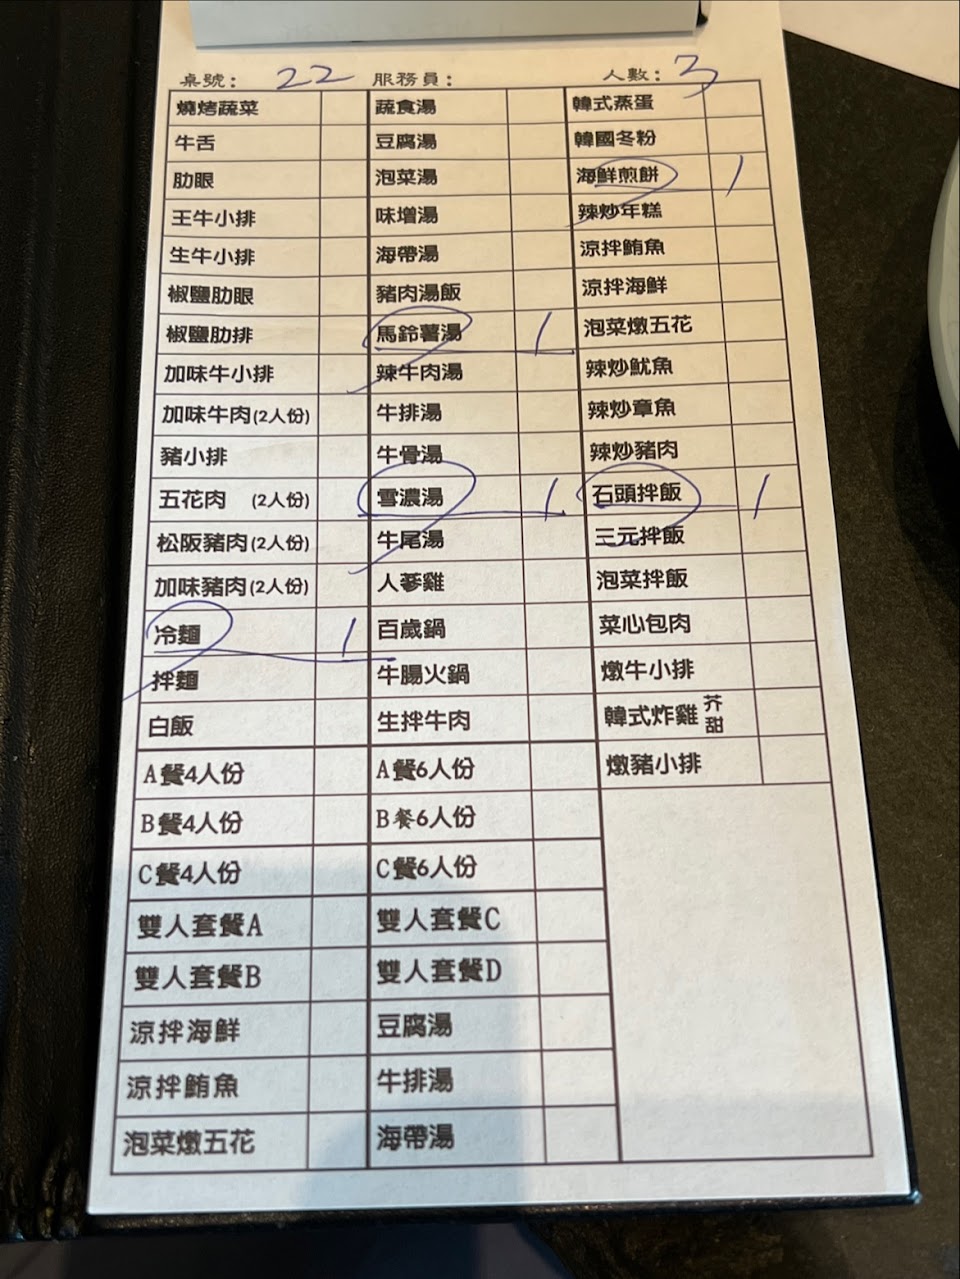 桌號: 22 服務員: 人數: 3
燒烤蔬菜 蔬食湯 韓式蒸蛋
牛舌 豆腐湯 韓國冬粉
肋眼 泡菜湯 海鮮煎餅 1
王牛小排 味增湯 辣炒年糕
生牛小排 海帶湯 涼拌鮪魚
椒鹽肋眼 豬肉湯飯 涼拌海鮮
椒鹽肋排 馬鈴薯湯 1 泡菜燉五花
加味牛小排 辣牛肉湯 辣炒魷魚
加味牛肉(2人份) 牛排湯 辣炒章魚
豬小排 牛骨湯 辣炒豬肉
五花肉 (2人份) 雪濃湯 1 石頭拌飯 1
松阪豬肉(2人份) 牛尾湯 三元拌飯
加味豬肉(2人份) 人蔘雞 泡菜拌飯
冷麵 1 百歲鍋 菜心包肉
拌麵 牛腸火鍋 燉牛小排
白飯 生拌牛肉 韓式炸雞 芥甜
A餐4人份 A餐6人份 燉豬小排
B餐4人份 B餐6人份
C餐4人份 C餐6人份
雙人套餐A 雙人套餐C
雙人套餐B 雙人套餐D
涼拌海鮮 豆腐湯
涼拌鮪魚 牛排湯
泡菜燉五花 海帶湯